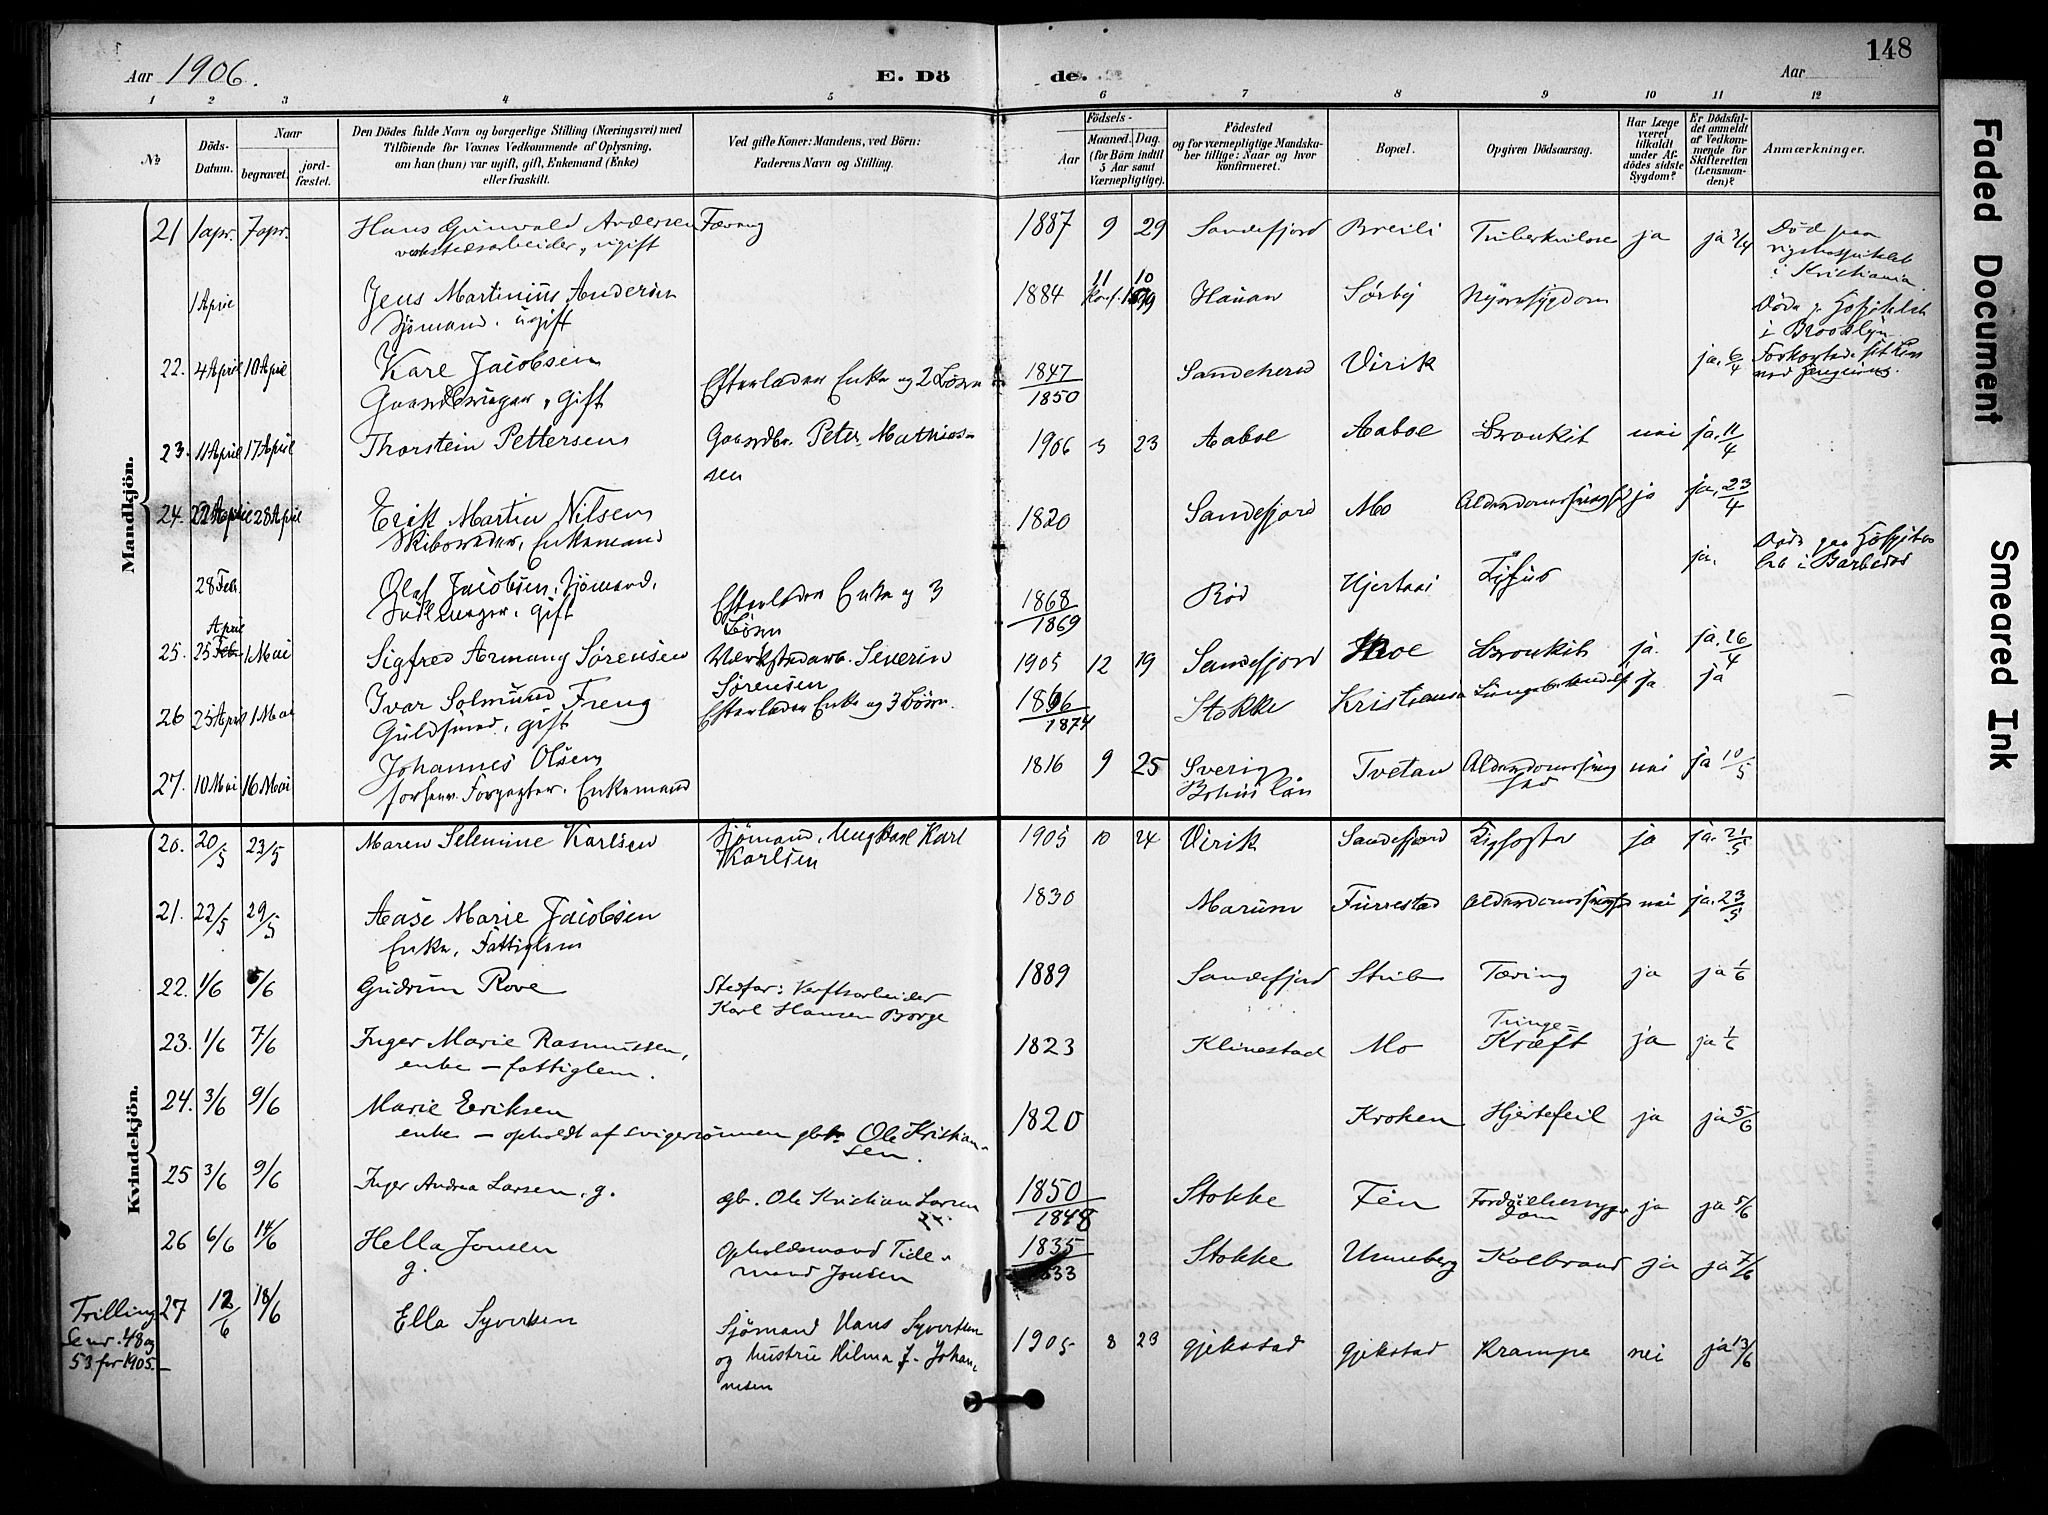 148
Aar 1906.
E. Döde.
Aar
1 2 3 4 5 6 7 8 9 10 11 12
No
Döds-Datum.
Naar
begravet.
jordfæstet.
Den Dödes fulde Navn og borgerlige Stilling (Næringsvei) med
Tilföiende for Voxnes Vedkommende af Oplysning,
om han (hun) var ugift, gift, Enkemand (Enke)
eller fraskilt.
Ved gifte Koner: Mandens, ved Börn:
Faderens Navn og Stilling.
Födsels-
Aar
Maaned. Dag.
(for Börn indtil
5 Aar samt
Værnepligtige).
Födested
og for værnepligtige Mandskaber tillige: Naar og hvor
konfirmeret.
Bopæl.
Opgiven Dödsaarsag.
Har Læge
været
tilkaldt
under Afdödes sidste
Sygdom?
Er Dödsfaldet anmeldt
af Vedkommende for
Skifteretten
(Lensmanden)?
Anmærkninger.
Mandkjön.
21 1 apr. 7 apr. Hans Grünvald Andersen Færeng 1887 9 29 Sandefjord Breili Tuberkulose ja ja 3/4 Död paa
verkstedsarbeider, ugift rigshospitalet
i Kristiania.
1 April Jens Martinius Andersen 1884 11 10 Hauan Sörby Nyresygdom
Sjömand, ugift
i Brooklyn
22. 4 April 10 April Karl Jacobsen Efterlader Enke og 2 Börn 1847/1850 Sandeherred Virik ja. 6/4 Forkortede sit Liv
Gaardbruger, gift
23. 11 April 17 April Thorstein Pettersen Gaardbr. Peter Mathiassen 1906 3 23 Aaboe Aaboe Bronkit nei ja. 11/4
24. 22 April 28 April Erik Martin Nilsen 1820 Sandefjord Mo Alderdomssvaghed ja ja. 23/4
Skibsreder, Enkemand
28 Feb. Olaf Jacobsen, Sjömand, Efterlader Enke og 3 Börn 1868/1869 Röd Hjertaas Tyfus ja. Döde paa Hospitalet i Barbedos
gift
25. 25 April 1 Mai Sigfred Armang Sörensen Værkstedarb. Severin Sörensen 1905 12 19 Sandefjord Bronkit ja. ja. 26/4
26 25 April 1 Mai Ivar Solmund Freng Efterlader Enke og 3 Börn. 1866/1874 Stokke ja ja
Guldsmed, gift
27. 10 Mai 16 Mai Johannes Olsen 1816 9 25 Sverig Bohus län Tvetan Alderdomssvaghed nei ja 10/5
forhenv. Forpagter. Enkemand
Kvindekjön.
20. 20/5 23/5 Maren Selemine Karlsen Sjömand, Ungkarl Karl Karlsen 1905 10 24 Virik Sandefjord ja ja. 21/5
21. 22/5 29/5 Aase Marie Jacobsen 1830 Marum Furrestad Alderdomssvaghed nei ja. 23/5
Enke, Fattiglem
22. 1/6 5/6 Gudrun Rove Stedfar: Verftsarbeider 1889 Sandefjord Stub Tæring ja ja 1/6
Karl Hansen Borge
23. 1/6 7/6 Inger Marie Rasmussen, 1823 Klinestad Mo Tunge=Kræft ja ja 1/6
enke – fattiglem.
24. 3/6 9/6 Marie Eriksen 1820 Kroken Hjertefeil ja ja 5/6
enke – opholdt af svigersönnen gbr. Ole Kristiansen.
25 3/6 9/6 Inger Andrea Larsen, g. gb. Ole Kristian Larsen 1850/1848 Stokke Fén ja ja 5/6
26 6/6 14/6 Hella Jonsen Opholdsmand Tidemand Jonsen 1835/1833 Stokke Unneberg Kolbrand ja ja 7/6
g.
Trilling
Se nr. 48 og
53 for 1905.
27 12/6 18/6 Ella Syvertsen Sjömand Hans Syvertsen 1905 8 23 Gjekstad Gjekstad Krampe nei ja 13/6
og hustru Hilma J. Johannesen
Faded Document
Smeared Ink